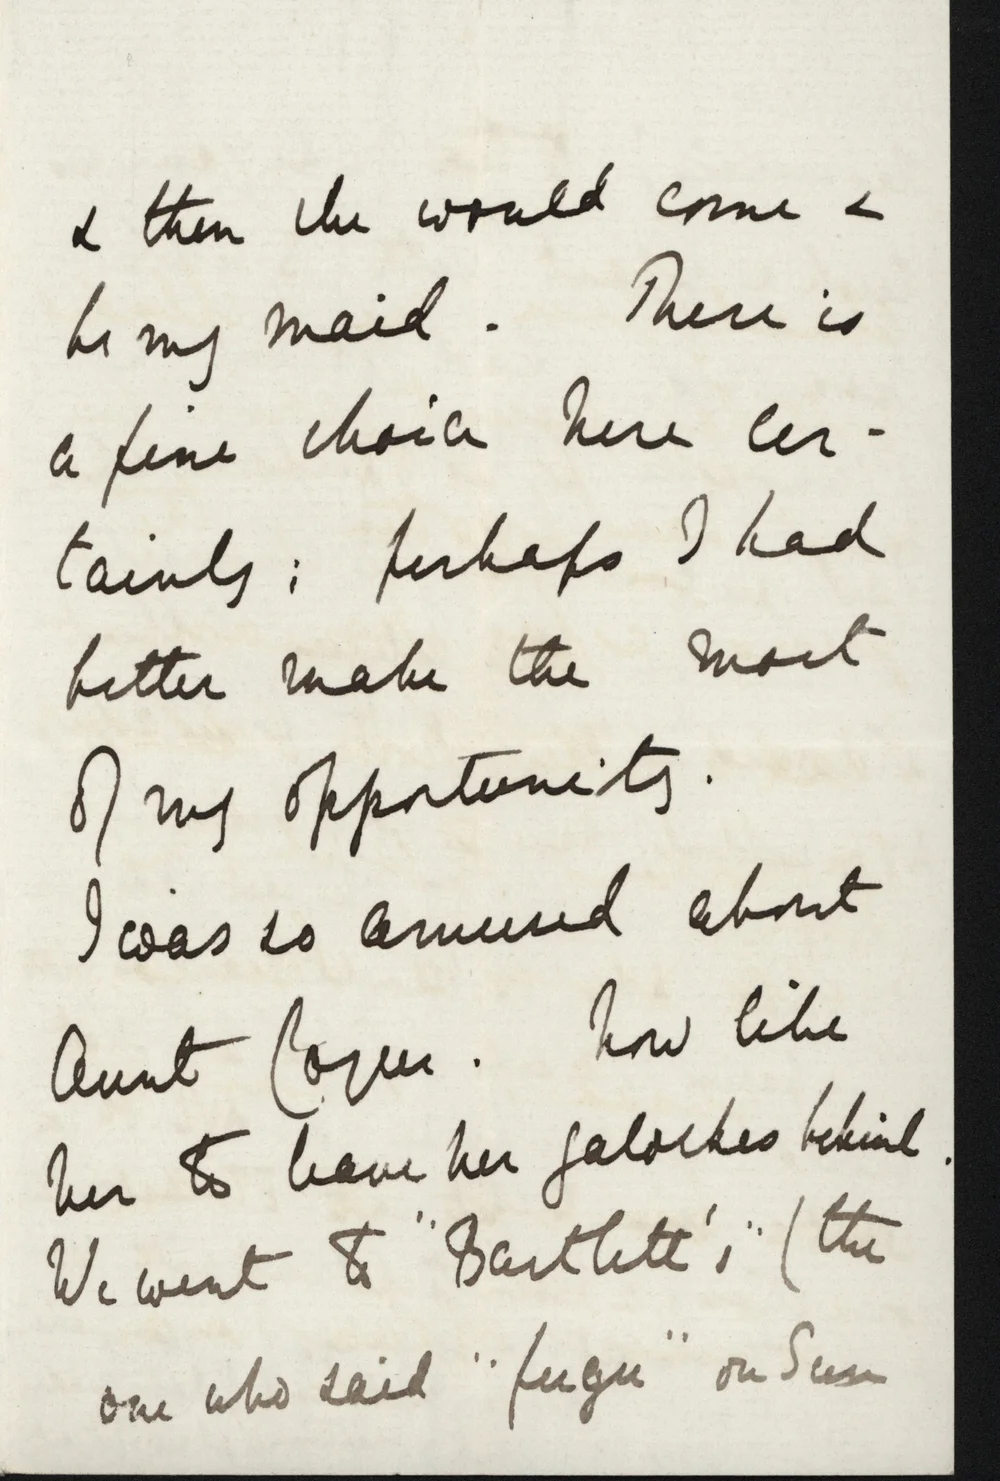 & then she would come &
be my maid. There is
a fine choice here cer-
tainly; perhaps I had
better make the most
of my opportunity.
I was so amused about
Aunt. how like
her to leave her galoshes behind.
We went to "Bartlett's" (the
one who said "fugu" on Sun